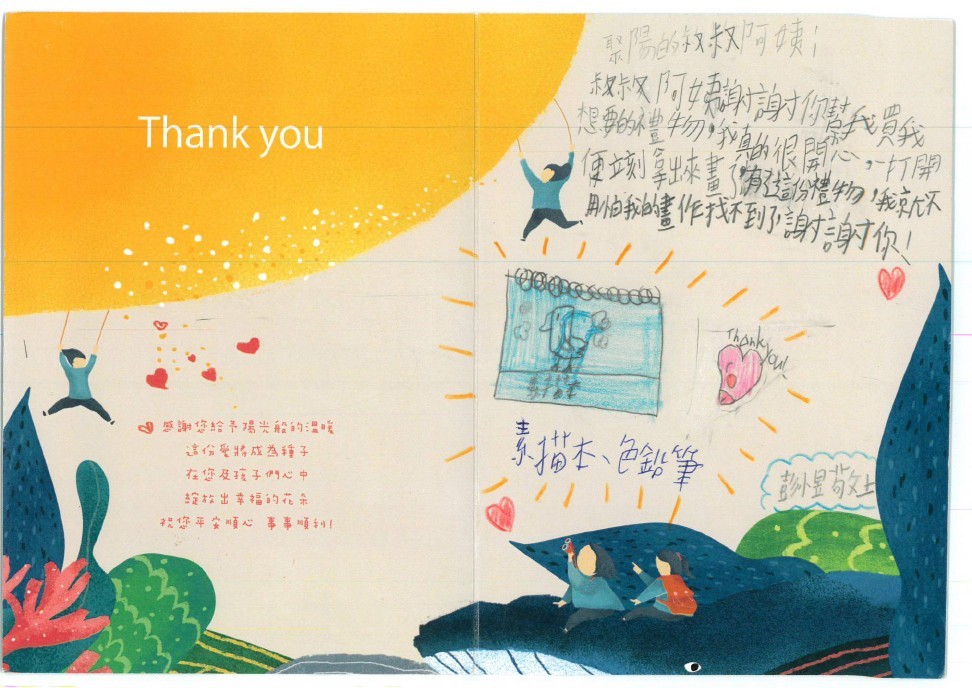 Thank you
感謝您給予陽光船的溫暖
這份愛將成為種子
在您及孩子們心中
綻放出幸福的花朵
祝您平安順心 事事順利!
聚陽的叔叔阿姨!
叔叔阿姨謝謝你幫我買我
想要的禮物,我真的很開心,一打開
便立刻拿出來畫了,有了這份禮物,我就不
用怕我的畫作找不到了謝謝你!
Thank
you!
素描本、色鉛筆
彭小昱敬上